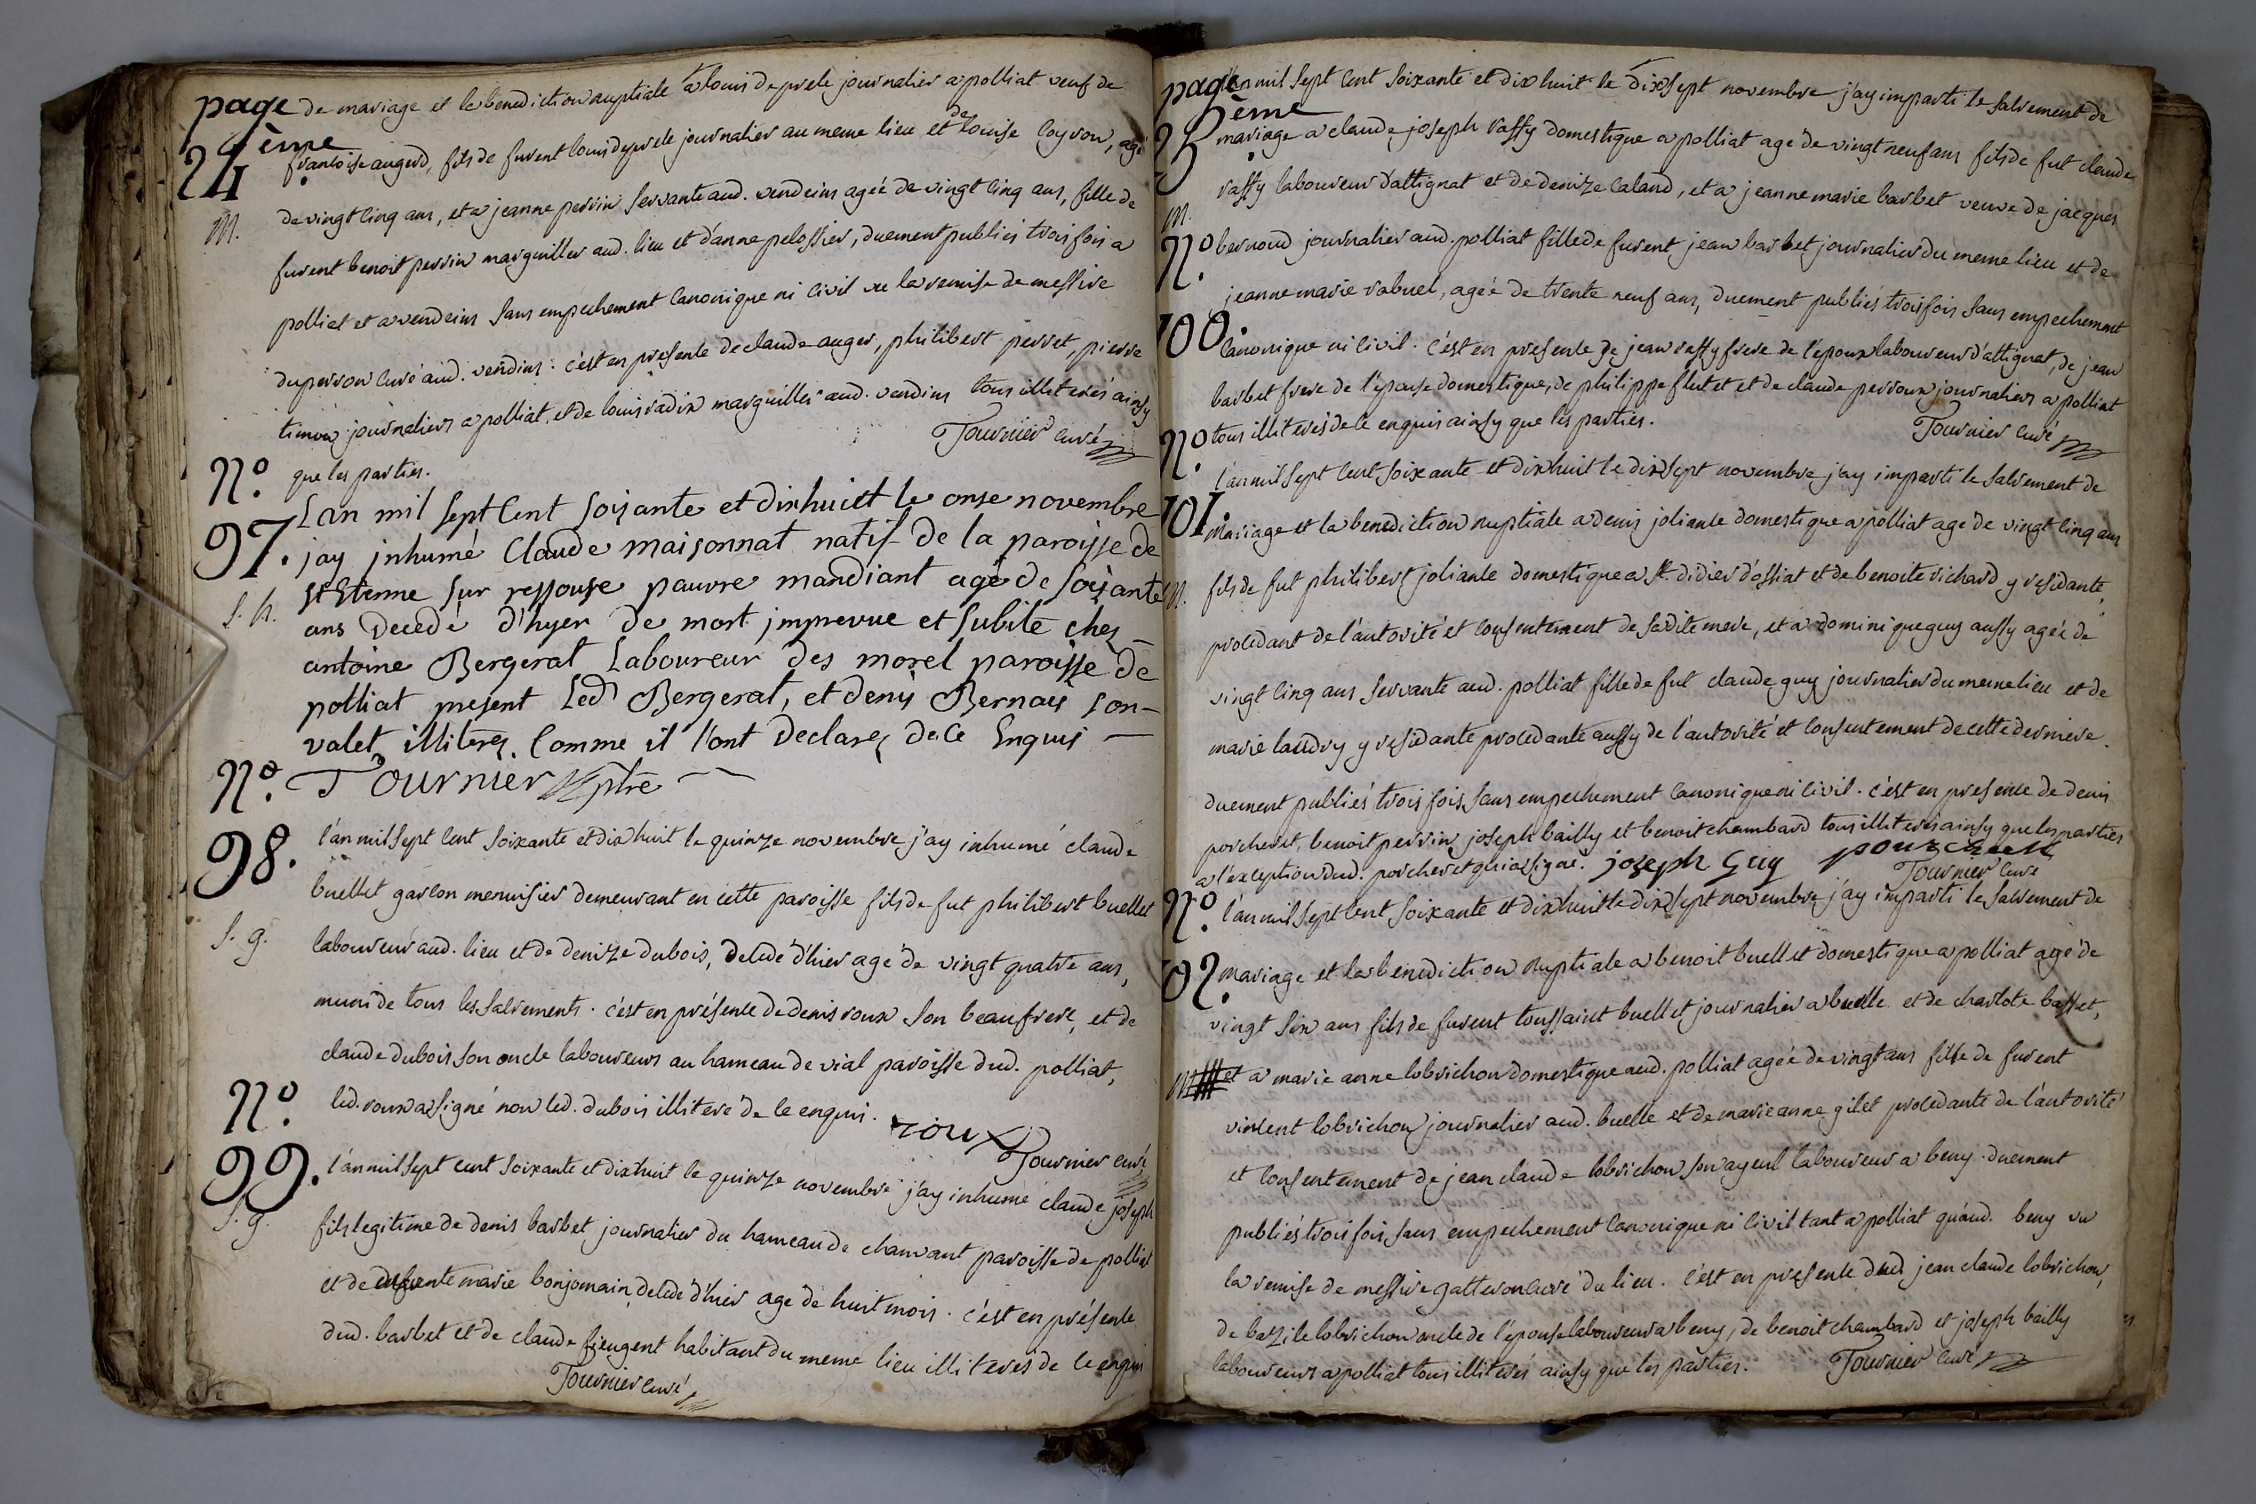 page 24ème
de mariage et la benediction nuptiale a louis deprele journalier a polliat veuf de
françoise augerd, fils de furent louis deprele journalier au meme lieu et de louise Coyron, agé
de vingt cinq ans, et a jeanne perrin servante aud. vendeins ageé de vingt cinq ans, fille de
M.
furent benoit perrin marguiller aud. lieu et d'anne pelossier, duement publiés trois fois a
polliat et a vendeins sans empechement canonique ni civil vu la remise de messire
duperron curé aud. vendins : c'est en presence de claude auger, philibert perret, pierre
timon journaliers a polliat, et de louis radix marguiller aud. vendins tous illeterés ainsy
que les parties.
Tournier curé
N.º 97.
Lan mil sept Cent soixante et dixhuict le onse novembre
jay jnhumé Claude maisonnat natif de la paroisse de
St Etienne sur ressouse pauvre mandiant agé de soixante
s. h.
ans decedé d'hyer de mort jmprevue et subite ches
antoine Bergerat Laboureur des morel paroisse de
polliat present Led Bergerat, et denis Bernais son
valet illiteres Comme il l'ont declares de Ce Enquis
Tournier ptre
N.º 98.
l'an mil sept cent soixante et dix huit le quinze novembre j'ay inhumé claude
buellet garcon menuisier demeurant en cette paroisse fils de fut philibert buellet
s. g.
laboureur aud. lieu et de denize dubois, decedé d'hier agé de vingt quatre ans,
muni de tous les sacrements . c'est en présence de denis roux son beaufrere, et de
claude dubois son oncle laboureurs au hameau de vial paroisse dud. polliat,
led. roux a signé non led. dubois illiteré de ce enquis. roux
Tournier curé
N.º 99.
l'an mil sept cent soixante et dix huit le quinze novembre j'ay inhumé claude joseph
s. g.
fils legitime de denis barbet journalier du hameau de chanvant paroisse de polliat
et de marie bonjomain, decedé d'hier age de huit mois . c'est en présence
dud. barbet et de claude fieugent habitant du meme lieu illiterés de ce enquis
Tournier curé
page 25ème
L'an mil sept cent soixante et dix huit le dix sept novembre j'ay imparti le sacrement de
mariage a claude joseph raffy domestique a polliat agé de vingt neuf ans fils de fut claude
raffy laboureur d'attignat et de denize caland, et a jeanne marie barbet veuve de jacques
M.
N.º 100.
bernoud journalier aud. polliat fille de furent jean barbet journalier du meme lieu et de
jeanne marie rabuel, ageé de trente neuf ans, duement publiés trois fois sans empechement
canonique ni civil . c'est en presence de jean raffy frere de l'epoux laboureur d'attignat, de jean
barbet frere de l'épouse domestique, de philippe flutet et de claude perroux journaliers a polliat
tous illiterés de ce enquis ainsy que les parties.
Tournier curé
N.º 101.
l'an mil sept cent soixante et dix huit le dix sept novembre j'ay imparti le sacrement de
mariage et la benediction nuptiale a denis joliance domestique a polliat agé de vingt cinq ans
M.
fils de fut philibert joliance domestique a St. didier d'ossiat et de benoite richard y residante,
procedant de l'autorité et consentement de sadite mere, et a dominique guy aussy ageé de
vingt cinq ans servante aud. polliat fille de fut claude guy journalier du meme lieu et de
marie landry y residante procedante aussy de l'autorité et consentement de cette derniere.
duement publiés trois fois sans empechement canonique ni civil . c'est en presence de denis
porcheret, benoit perrin, joseph bailly et benoit chambard tous illiterés ainsy que les parties
a l'exception dud. porcheret qui a signé. joseph Guy
Tournier curé
N.º 102.
l'an mil sept cent soixante et dix huit le dix sept novembre j'ay imparti le sacrement de
mariage et la benediction nuptiale a benoit buellet domestique a polliat agé de
vingt six ans fils de furent toussaint buellet journalier a buelle et de charlote basset,
M
et a marie anne lobrichon domestique aud. polliat ageé de vingt ans fille de furent
vincent lobrichon journalier aud. buelle et de marie anne gilet procedante de l'autorité
et consentement de jean claude lobrichon son ayeul laboureur a beny . duement
publiés trois fois sans empechement canonique ni civil tant a polliat qu'aud. beny vu
la remise de messire gatteron curé du lieu . c'est en presence dud jean claude lobrichon,
de bazile lobrichon oncle de l'épouse laboureurs a beny, de benoit chambard et joseph bailly
laboureurs a polliat tous illiterés ainsy que les parties.
Tournier curé